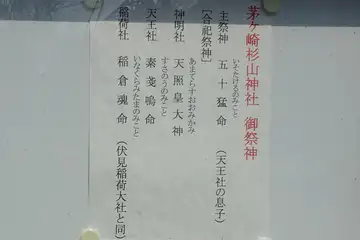 茅ケ崎杉山神社 御祭神
主祭神 五十猛命 (天王社の息子)
いたけるのみこと
[合祀祭神]
神明社 天照皇大神
あまてらすおおみかみ
天王社 素戔嗚命
すさのうのみこと
稲荷社 稲倉魂命 (伏見稲荷大社と同)
いなくらみたまのみこと